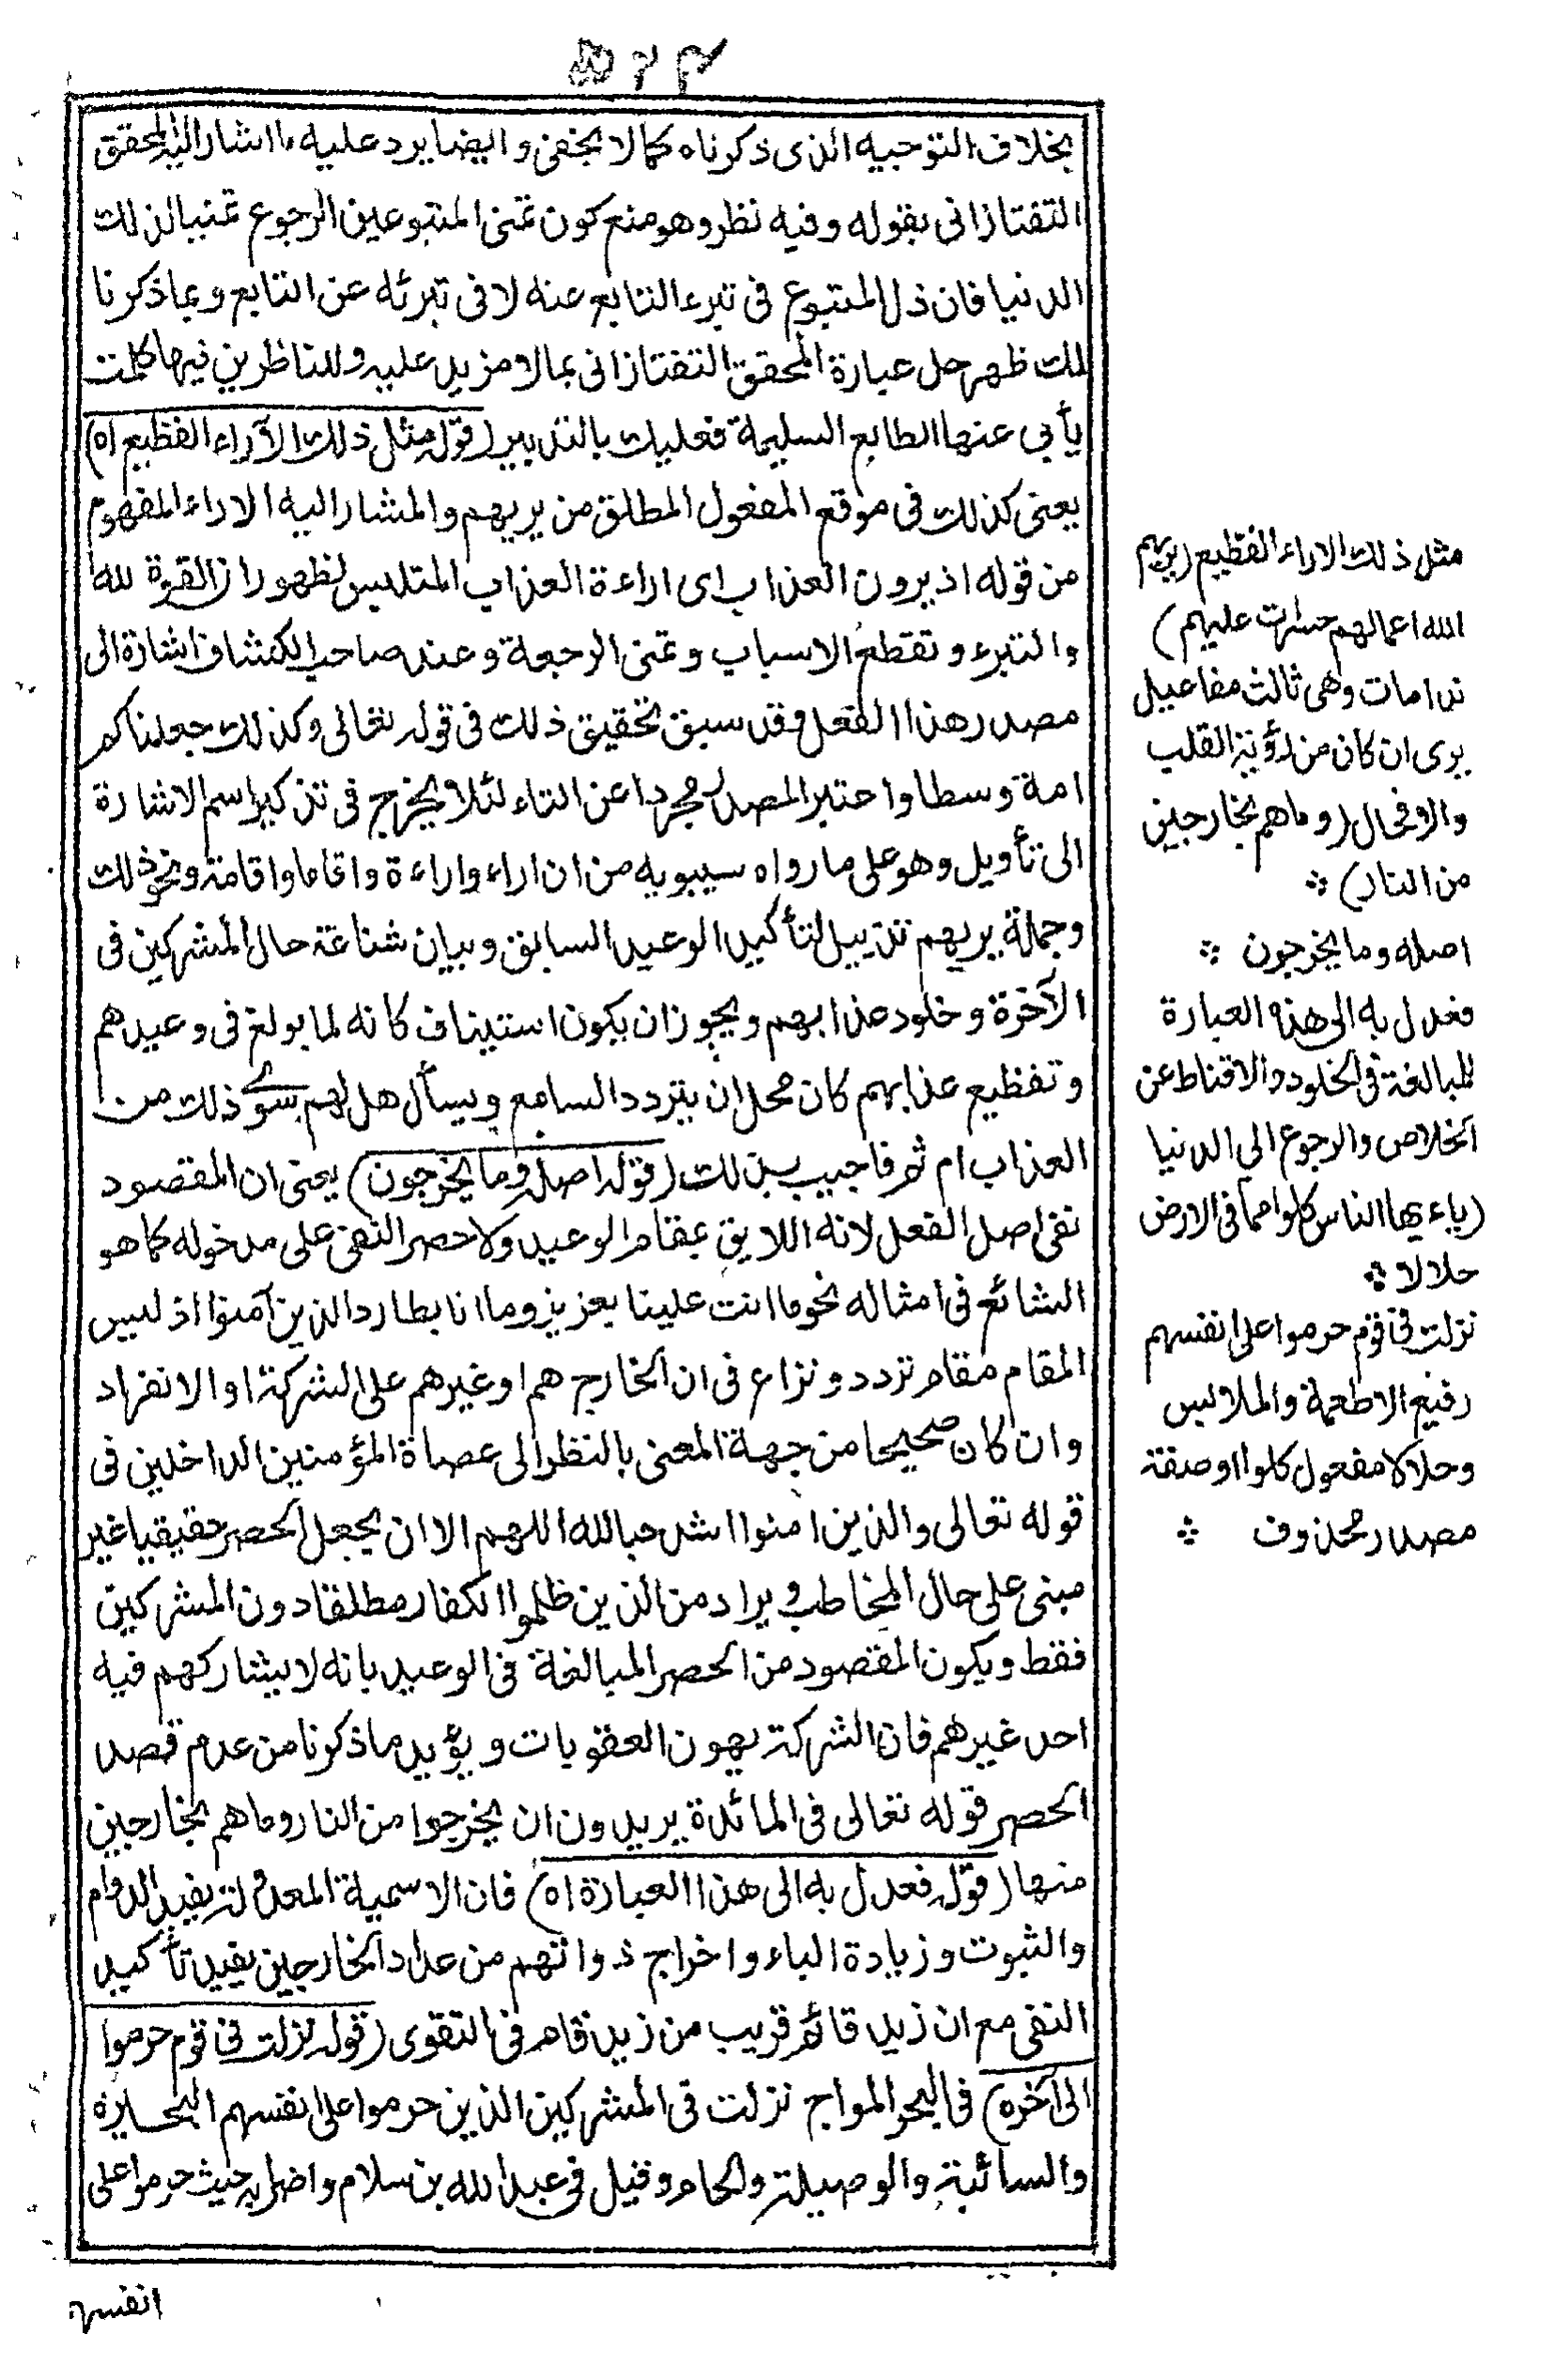 بخلاف التوجيه الذى ذكرناه كما لا يخفى و ايضا يرد عليه ما اشار اليه المحقق
التفتازانى بقوله وفيه نظر وهو منع كون تمنى المتبوعين الرجوع تمنيا لذلك
الدنيا فان ذل المتبوع فى تبرء التابع عنه لا فى تبرئه عن التابع وبما ذكرنا
لك ظهر حل عبارة المحقق التفتازانى بما لا مزيد عليه وللناظرين فيها كلمات
يأبى عنها الطابع السليمة فعليك بالتدبير (قوله مثل ذلك الآراء الفظيع اه)
يعنى كذلك فى موقع المفعول المطلق من يريهم والمشار اليه الاراء المفهوم
من قوله اذ يرون العذاب اى اراءة العذاب المتلبس لظهور ان القوة لله
والتبرء وتقطع الاسباب وتمنى الرجعة وعند صاحب الكشاف اشارة الى
مصدر هذا الفعل وقد سبق تحقيق ذلك فى قوله تعالى وكذلك جعلناكم
امة وسطا واعتبر المصدر مجردا عن التاء لئلا يخرج فى تذكير اسم الاشارة
الى تأويل وهو على ما رواه سيبويه من ان اراء واراءة واقاما واقامة ونحو ذلك
وجملة يريهم تذييل لتأكيد الوعيد السابق وبيان شناعة حال المشركين فى
الآخرة وخلود عذابهم ويجوز ان يكون استيناف كانه لما بولغ فى وعيدهم
وتفظيع عذابهم كان محل ان يتردد السامع ويسأل هل لهم سوى ذلك من
العذاب ام ثم فاجيب بذلك (قوله اصله وما يخرجون) يعنى ان المقصود
نفى اصل الفعل لانه اللايق بمقام الوعيد ولا حصر النفى على مدخوله كما هو
الشائع فى امثاله نحو ما انت علينا بعزيز وما انا بطارد الذين آمنوا اذ ليس
المقام مقام تردد ونزاع فى ان الخارج هم او غيرهم على الشركة او الانفراد
وان كان صحيحا من جهة المعنى بالنظر الى عصاة المؤمنين الداخلين فى
قوله تعالى والذين امنوا اشد حبا لله اللهم الا ان يجعل الحصر حقيقيا غير
مبنى على حال المخاطب ويراد من الذين ظلموا الكفار مطلقا دون المشركين
فقط ويكون المقصود من الحصر المبالغة فى الوعيد بانه لا يشاركهم فيه
احد غيرهم فان الشركة يهون العقوبات ويؤيد ما ذكرنا من عدم قصد
الحصر قوله تعالى فى المائدة يريدون ان يخرجوا من النار وما هم بخارجين
منها (قوله فعدل به الى هذا العبارة اه) فان الاسمية المعدولة يفيد الدوام
والثبوت وزيادة الباء واخراج ذواتهم من عداد الخارجين يفيد تأكيد
النفى مع ان زيد قائم قريب من زيد قام فى التقوى (قوله نزلت فى قوم حرموا
الى آخره) فى البحر المواج نزلت فى المشركين الذين حرموا على انفسهم البحيرة
والسائبة والوصيلة والحام وقيل فى عبد الله بن سلام واضرابه حيث حرموا على
انفسهم
مثل ذلك الاراء الفظيع (يريهم
الله اعمالهم حسرات عليهم)
ندامات وهى ثالث مفاعيل
يرى ان كان من رؤية القلب
والا فحال (وما هم بخارجين
من النار) ؞
اصله وما يخرجون ؞
فعدل به الى هذه العبارة
للمبالغة فى الخلود والاقناط عن
الخلاص والرجوع الى الدنيا
(ياءيها الناس كلوا مما فى الارض
حلالا ؞
نزلت فى قوم حرموا على انفسهم
رفيع الاطعمة والملابس
وحلالا مفعول كلوا او صفة
مصدر محذوف ؞